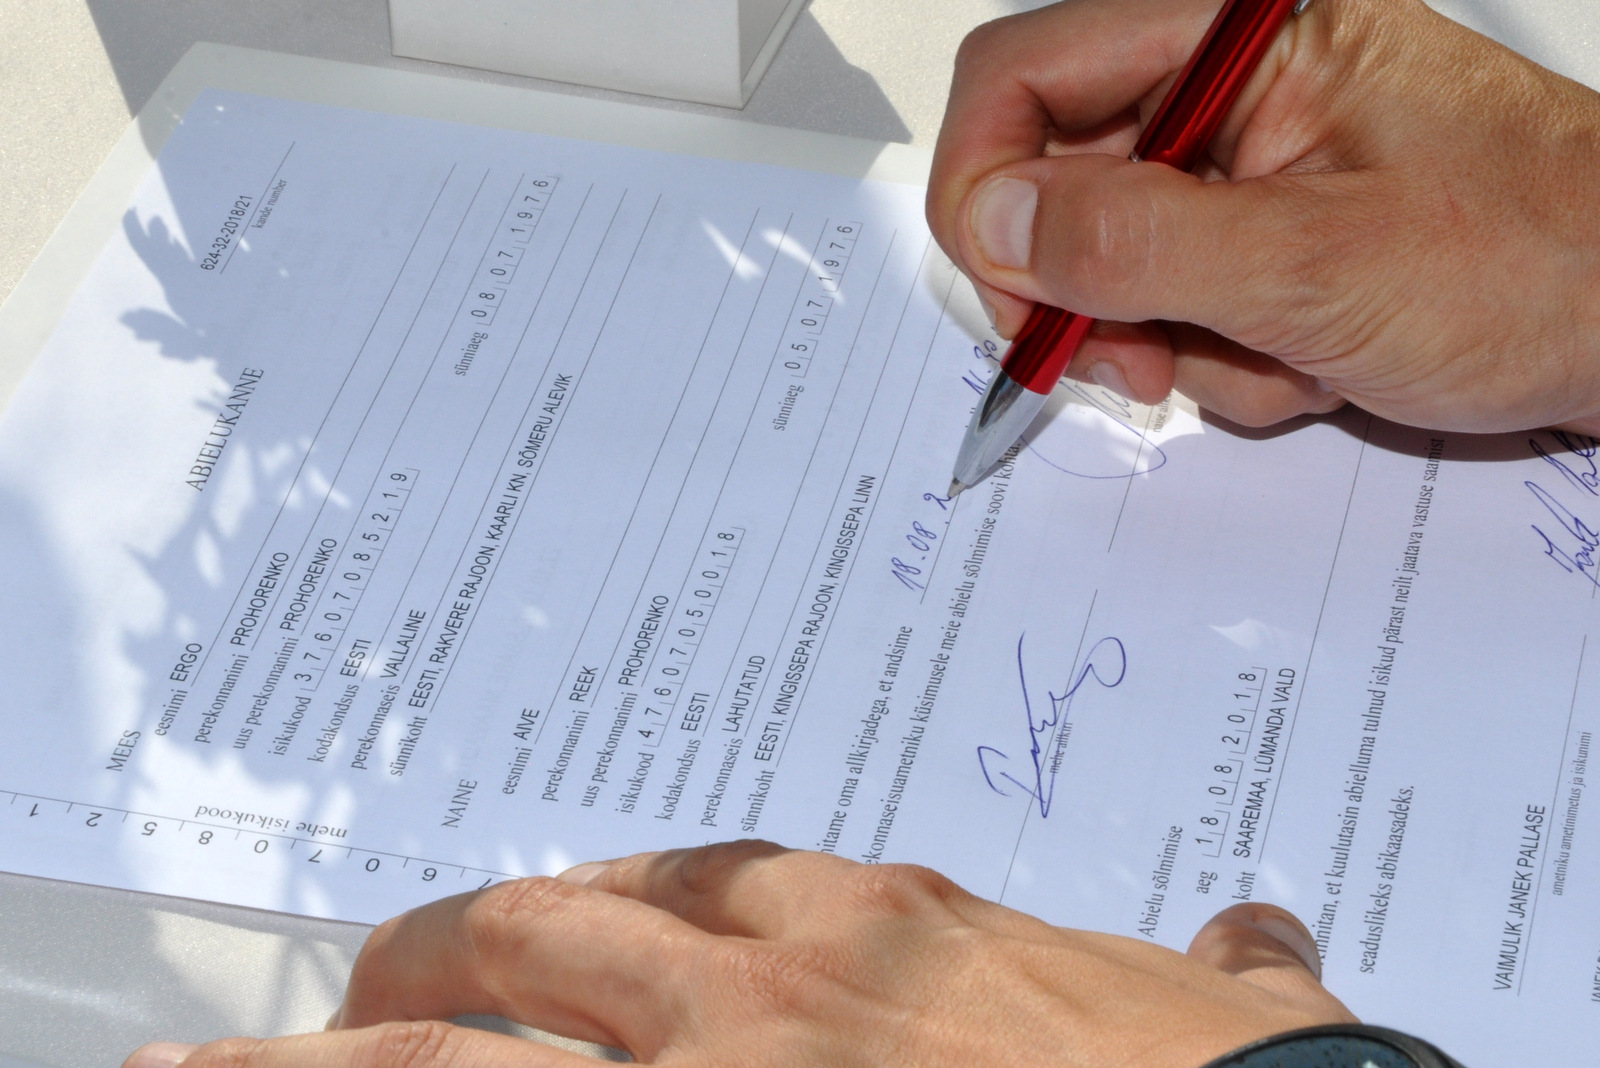 624-32-2018/21
kande number
ABIELUKANNE
MEES
eesnimi ERGO
perekonnanimi PROHORENKO
uus perekonnanimi PROHORENKO
isikukood 37607085219 sünniaeg 08071976
kodakondsus EESTI
perekonnaseis VALLALINE
sünnikoht EESTI, RAKVERE RAJOON, KAARLI KN, SÕMERU ALEVIK
NAINE
eesnimi AIVE
perekonnanimi REEK
uus perekonnanimi PROHORENKO
isikukood 47607050018 sünniaeg 05071976
kodakondsus EESTI
perekonnaseis LAHUTATUD
sünnikoht EESTI, KINGISSEPA RAJOON, KINGISSEPA LINN
oma allkirjadega, et andsime 18.08.2
küsimusele meie abielu sõlmimise soovi kohta,
mehe allkiri
naise
Abielu sõlmimise
aeg 18082018
koht SAAREMAA, LÜMANDA VALD
et kuulutasin abielluma tulnud isikud pärast neilt jaatava vastuse saamist
seaduslikeks abikaasadeks.
VAIMULIK JANEK PALLASE
ametniku ametinimetus ja isikunimi
mehe isikukood
6 0 7 0 8 5 2 1